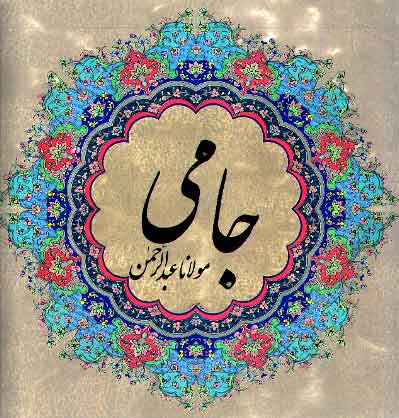 جامی
مولانا عبدالرحمٰن